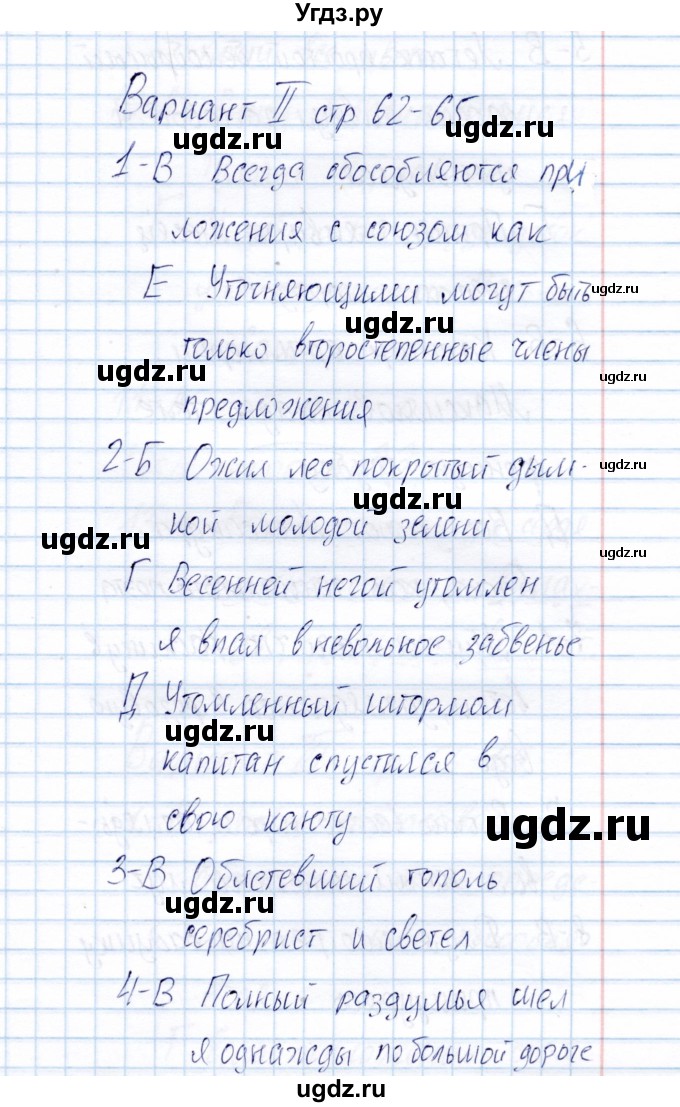 Угдз.ру
Вариант II стр 62-65
ugdz.ru
1-В Всегда обособляются при
ложения с союзом как
Е Уточняющими могут быть
ugdz.ru
ugdz.ru
только второстепенные члены
ugdz.ru
предложения
2-Б Ожил лес покрытый дым-
ugdz.ru
ugdz.ru
кой молодой зелени
ugdz.ru
ugdz.ru
Г Весенней негой утомлен
я впал в невольное забвенье
Д Утомленный штормом
ugdz.ru
капитан спустился в
свою каюту
ugdz.ru
3-В Облетевший тополь
ugdz.ru
серебрист и светел
4-В Полный раздумья шел
я однажды по большой дороге
ugdz.ru